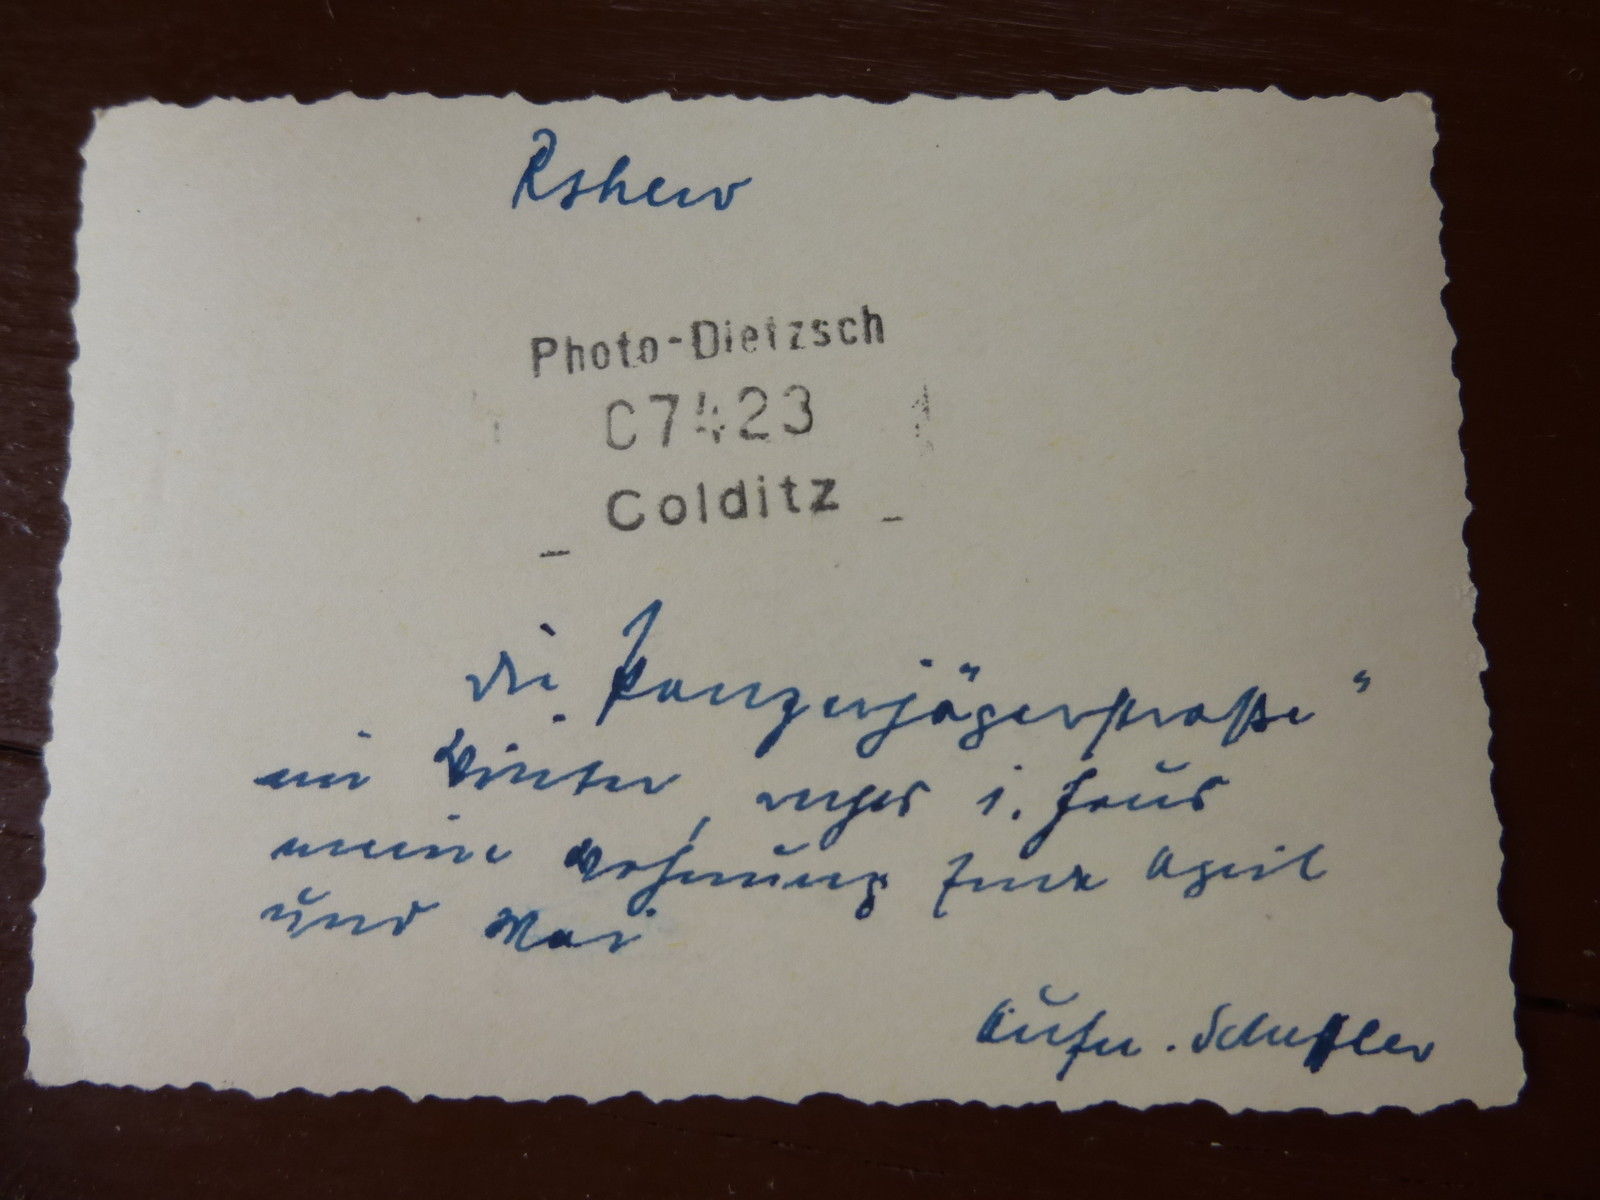 Rshew
Photo-Dietzsch
C7423
Colditz
die „Panzerjägerstraße"
im Winter, rechts i. Haus
meine Wohnung Ende April
und Mai
Aufn. Scheffler